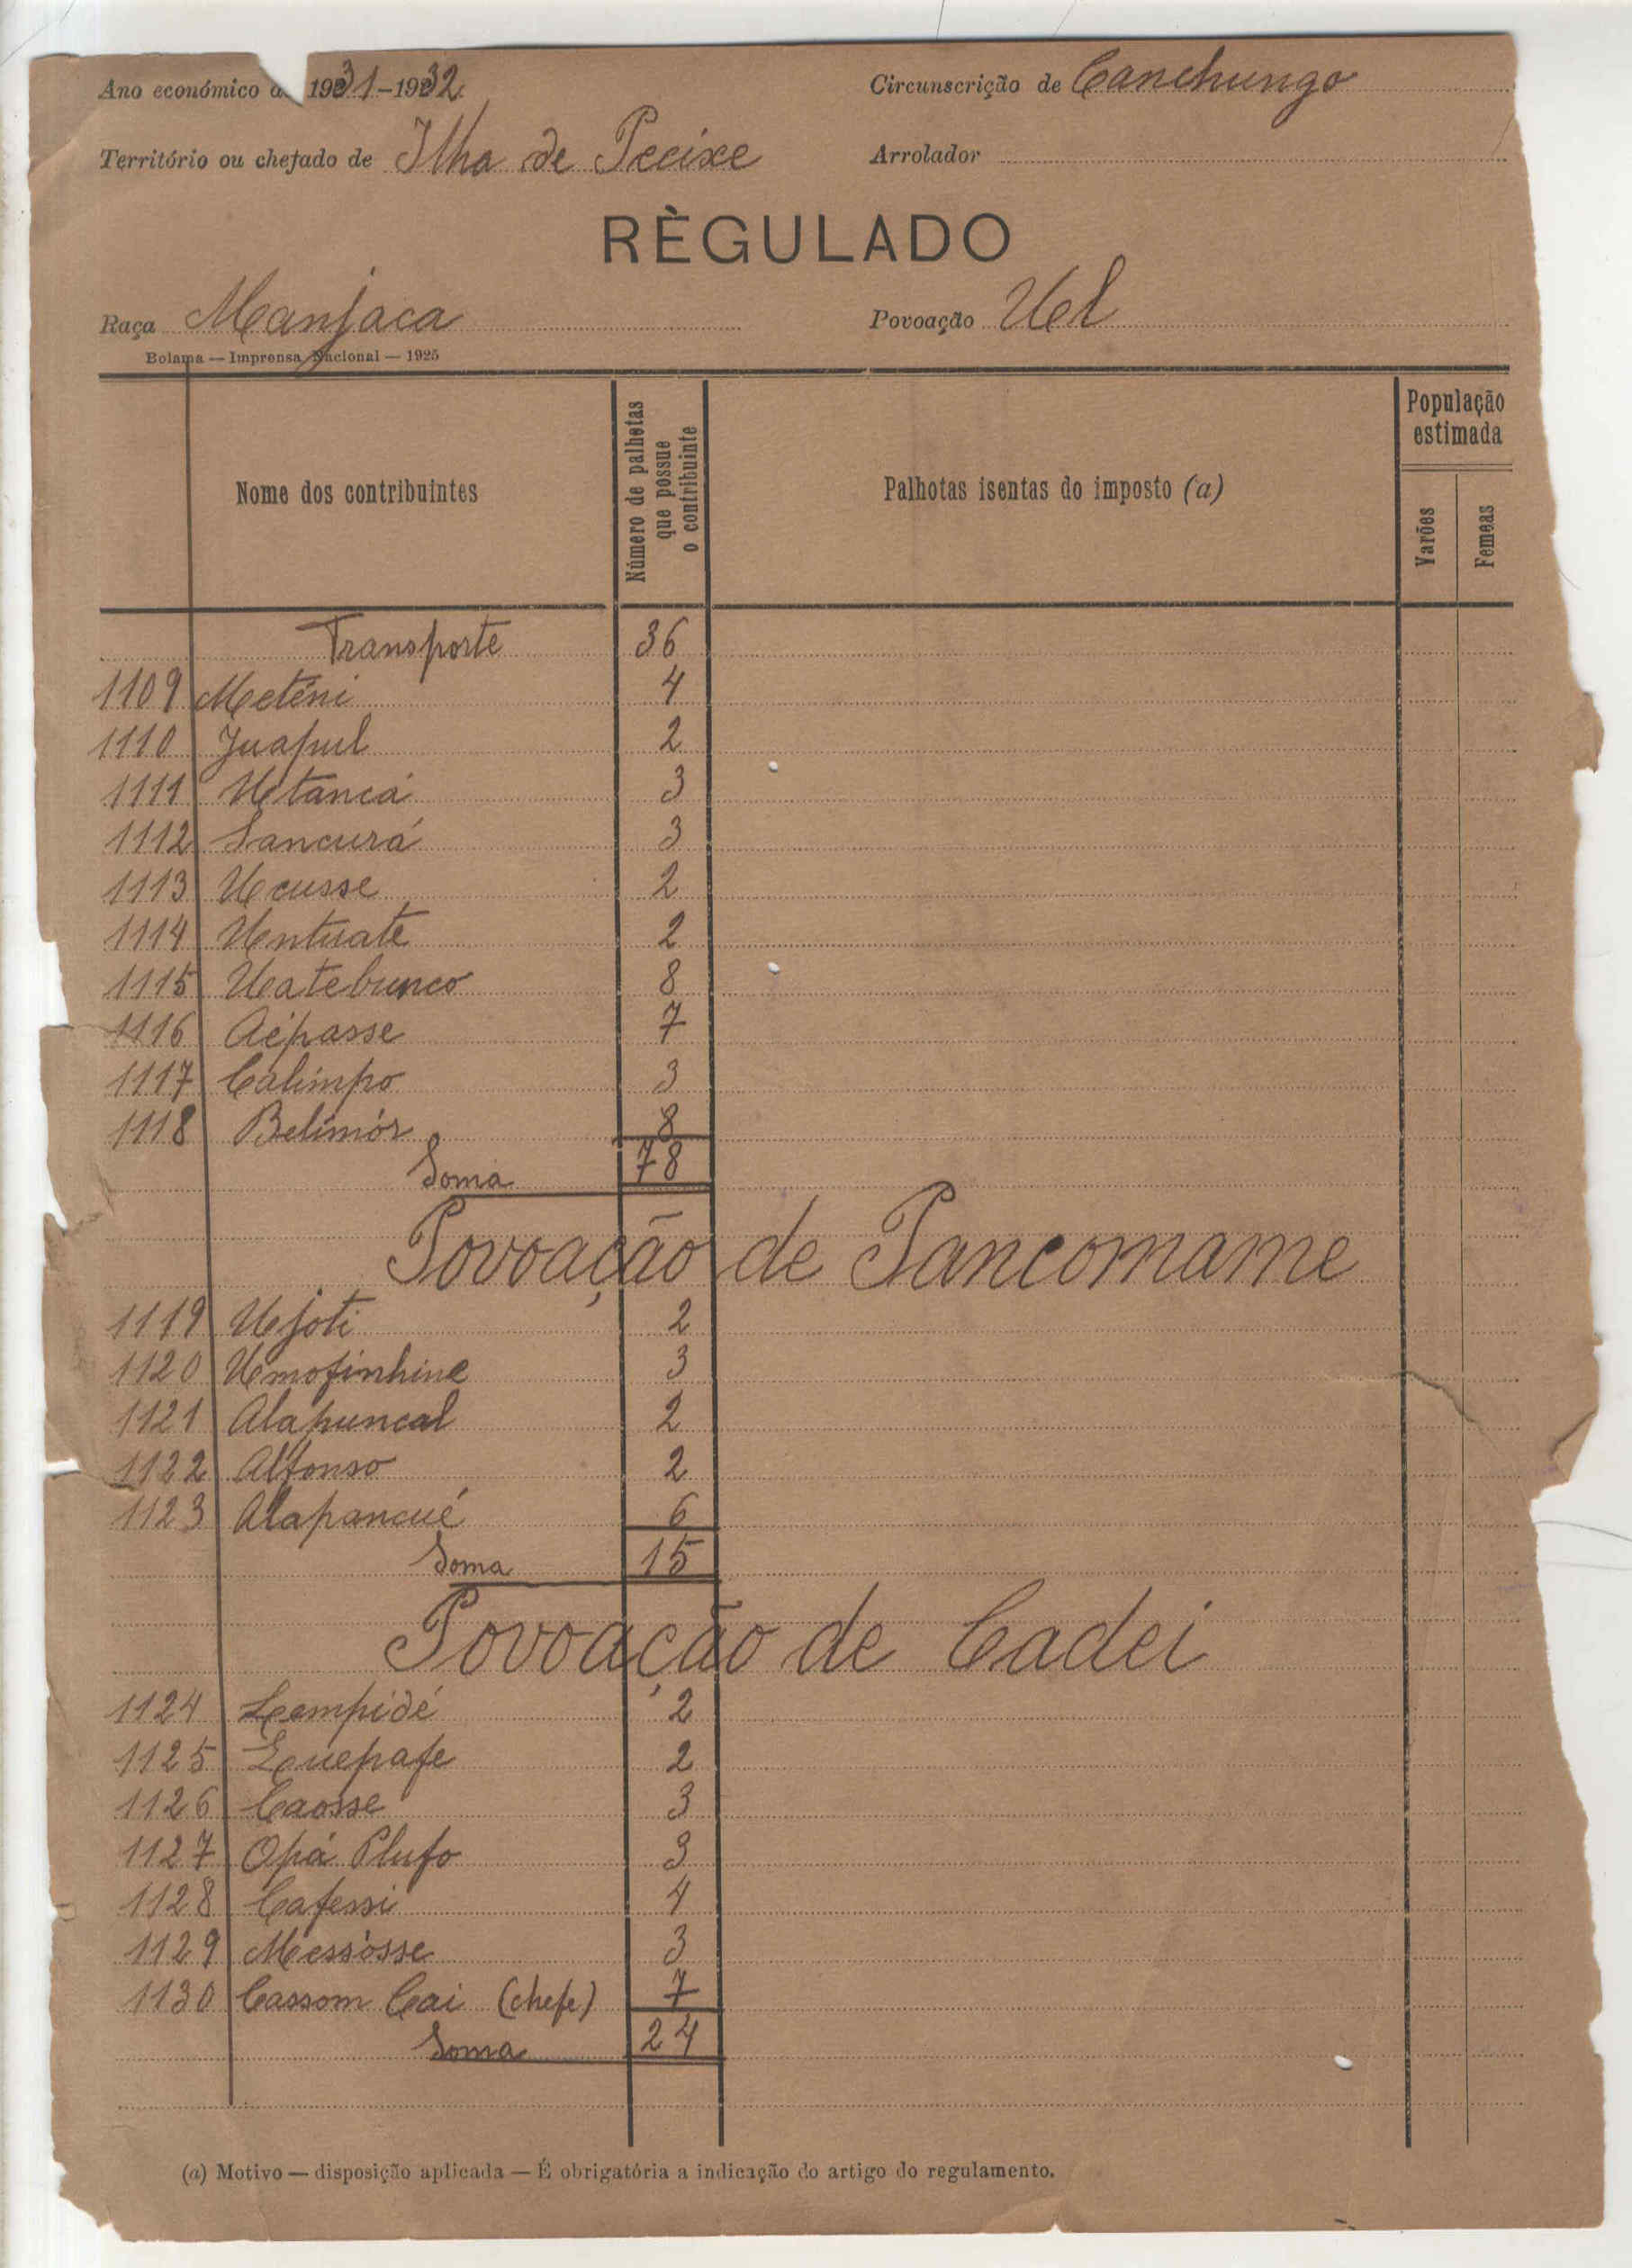 Ano económico d 1931-1932
Circunscrição de Canchungo
Território ou chefado de Ilha de Pecixe
Arrolador
RÈGULADO
Raça Manjaca
Povoação Uel
Bolama — Imprensa Nacional — 1925
Nome dos contribuintes
Número de palhotas que possue o contribuinte
Palhotas isentas do imposto (a)
População estimada
Varões
Femeas
Transporte 36
1109 Meténi 4
1110 Juapul 2
1111 Utancá 3
1112 Sancurá 3
1113 Ucusse 2
1114 Untuate 2
1115 Uatebunco 8
1116 Aépasse 7
1117 Calimpo 3
1118 Belimór 8
Soma 78
Povoação de Pancomame
1119 Ujoti 2
1120 Umofinhine 3
1121 Alapuncal 2
1122 Alfonso 2
1123 Alapancué 6
Soma 15
Povoação de Cadei
1124 Lempidé 2
1125 Luepafe 2
1126 Caosse 3
1127 Opá Plufo 3
1128 Cafessi 4
1129 Messósse 3
1130 Cassom Cai (chefe) 7
Soma 24
(a) Motivo — disposição aplicada — É obrigatória a indicação do artigo do regulamento.